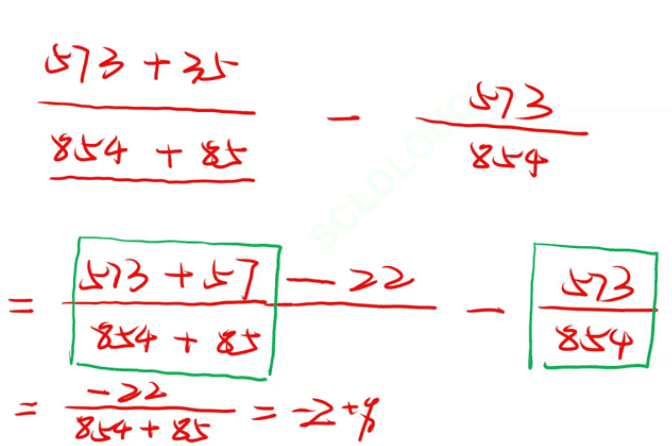 573 + 35 / 854 + 85 - 573 / 854
= 573 + 57 - 22 / 854 + 85 - 573 / 854
= -22 / 854 + 85 = -2+%
SCLDLOUC